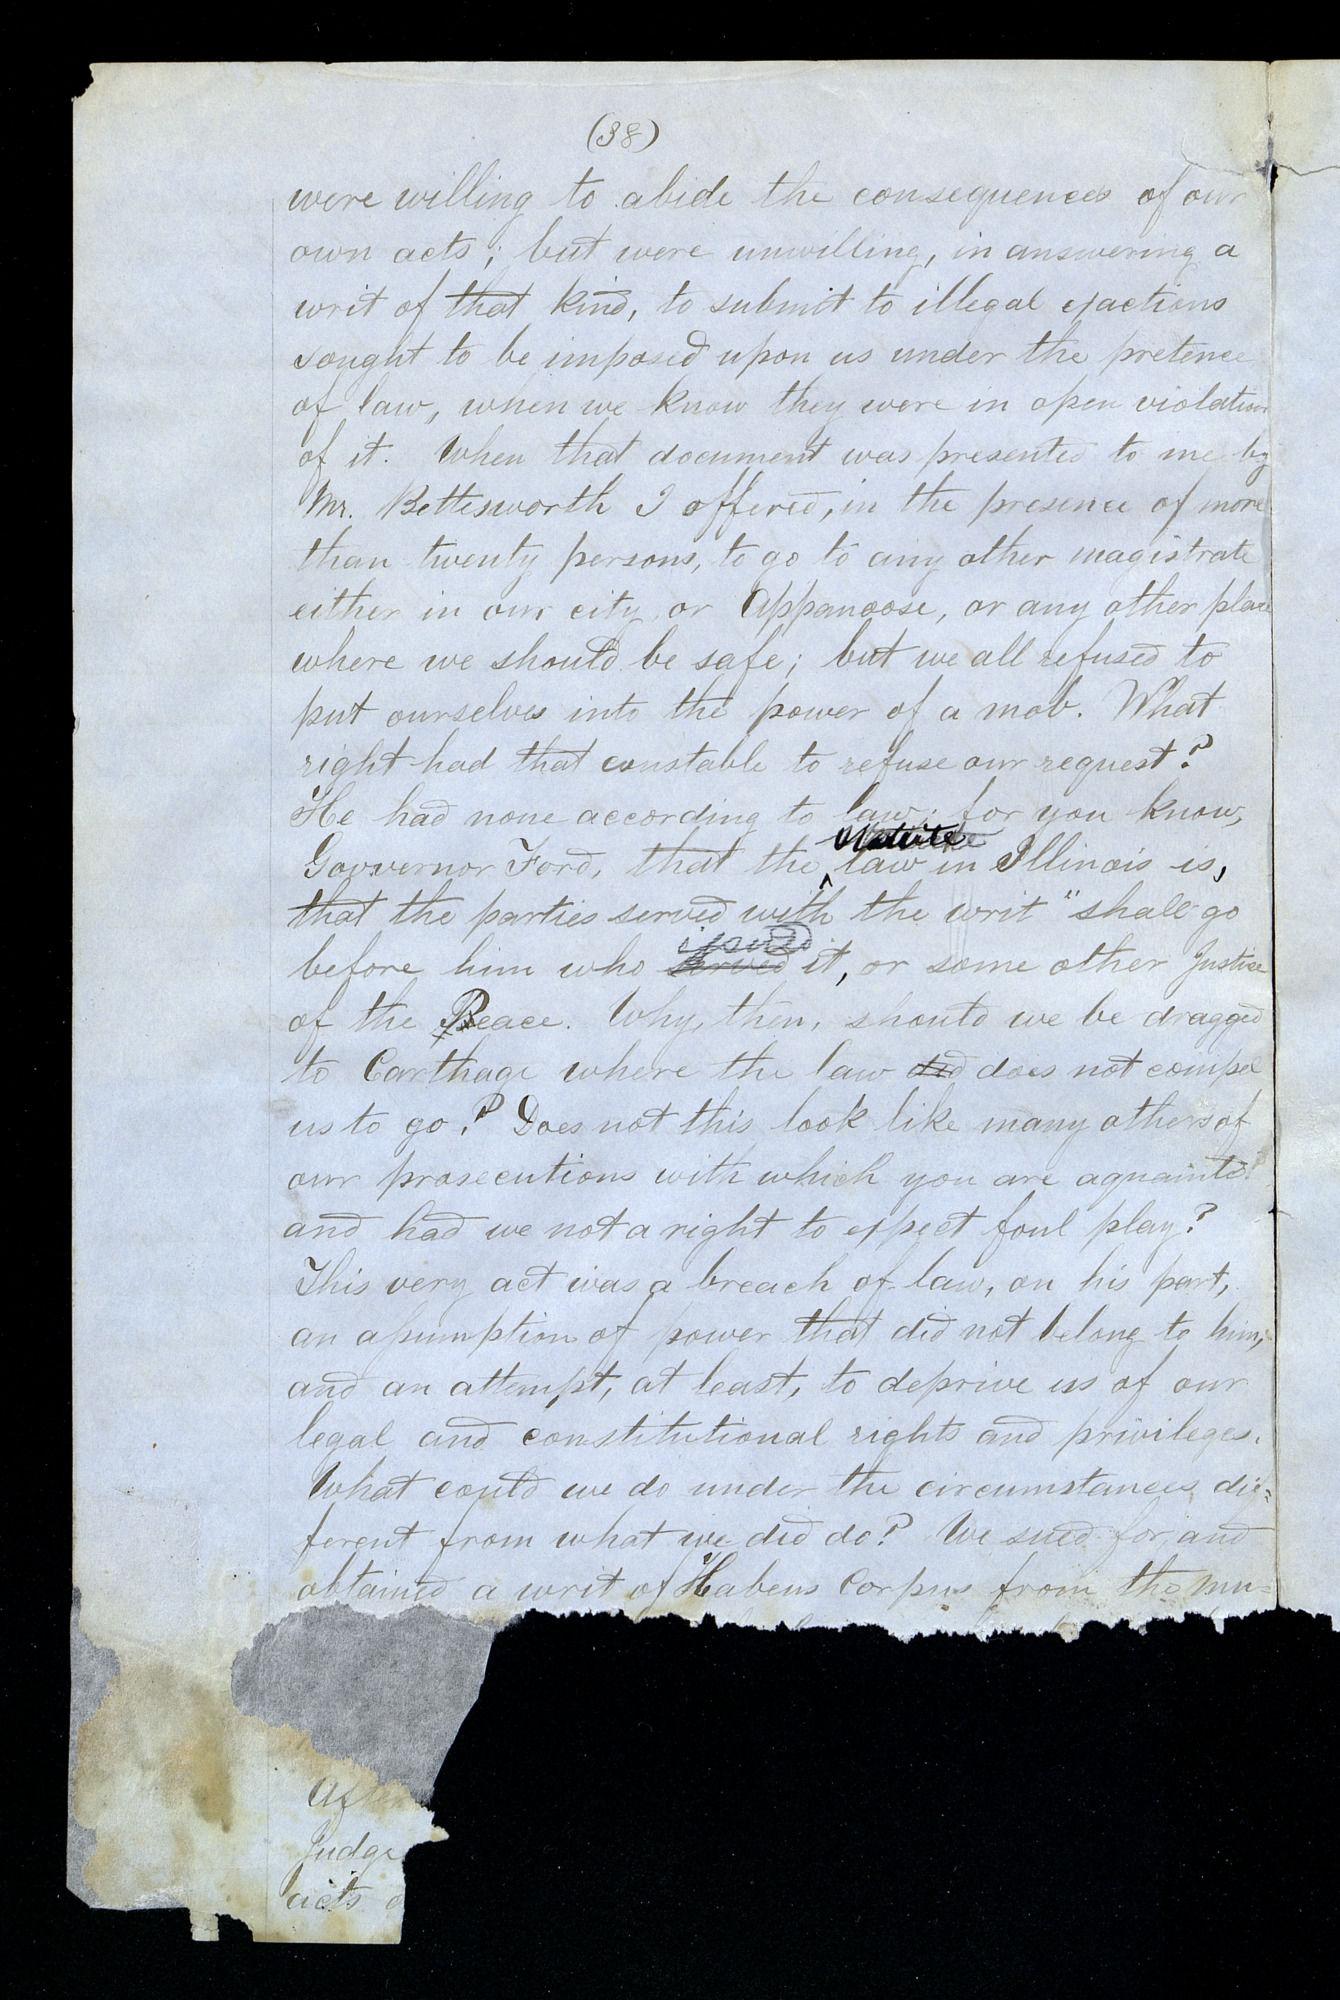 (38)
were willing to abide the consequences of our
own acts; but were unwilling, in answering a
writ of that kind, to submit to illegal exactions
sought to be imposed upon us under the pretence
of law, when we know they were in open violation
of it. When that document was presented to me by
Mr. Bettisworth I offered, in the presence of more
than twenty persons, to go to any other magistrate
either in our city, or Appanoose, or any other place
where we should be safe; but we all refused to
put ourselves into the power of a mob. What
right had that constable to refuse our request?
He had none according to law; for you know,
Statute
Govvernor Ford, that the law in Illinois is,
that the parties served with the writ "shall go
issued
before him who served it, or some other Justice
of the Peace. Why, then, should we be dragged
to Carthage where the law did does not compel
us to go? Does not this look like many others of
our prosecutions with which you are aquainted?
and had we not a right to expect foul play?
This very act was a breach of law, on his part,
an assumption of power that did not belong to him,
and an attempt, at least, to deprive us of our
legal and constitutional rights and privileges.
What could we do under the circumstances dif=
ferent from what we did do? We sued for, and
obtained a writ of Habeus Corpus from the Mu=
After
Judge
acts